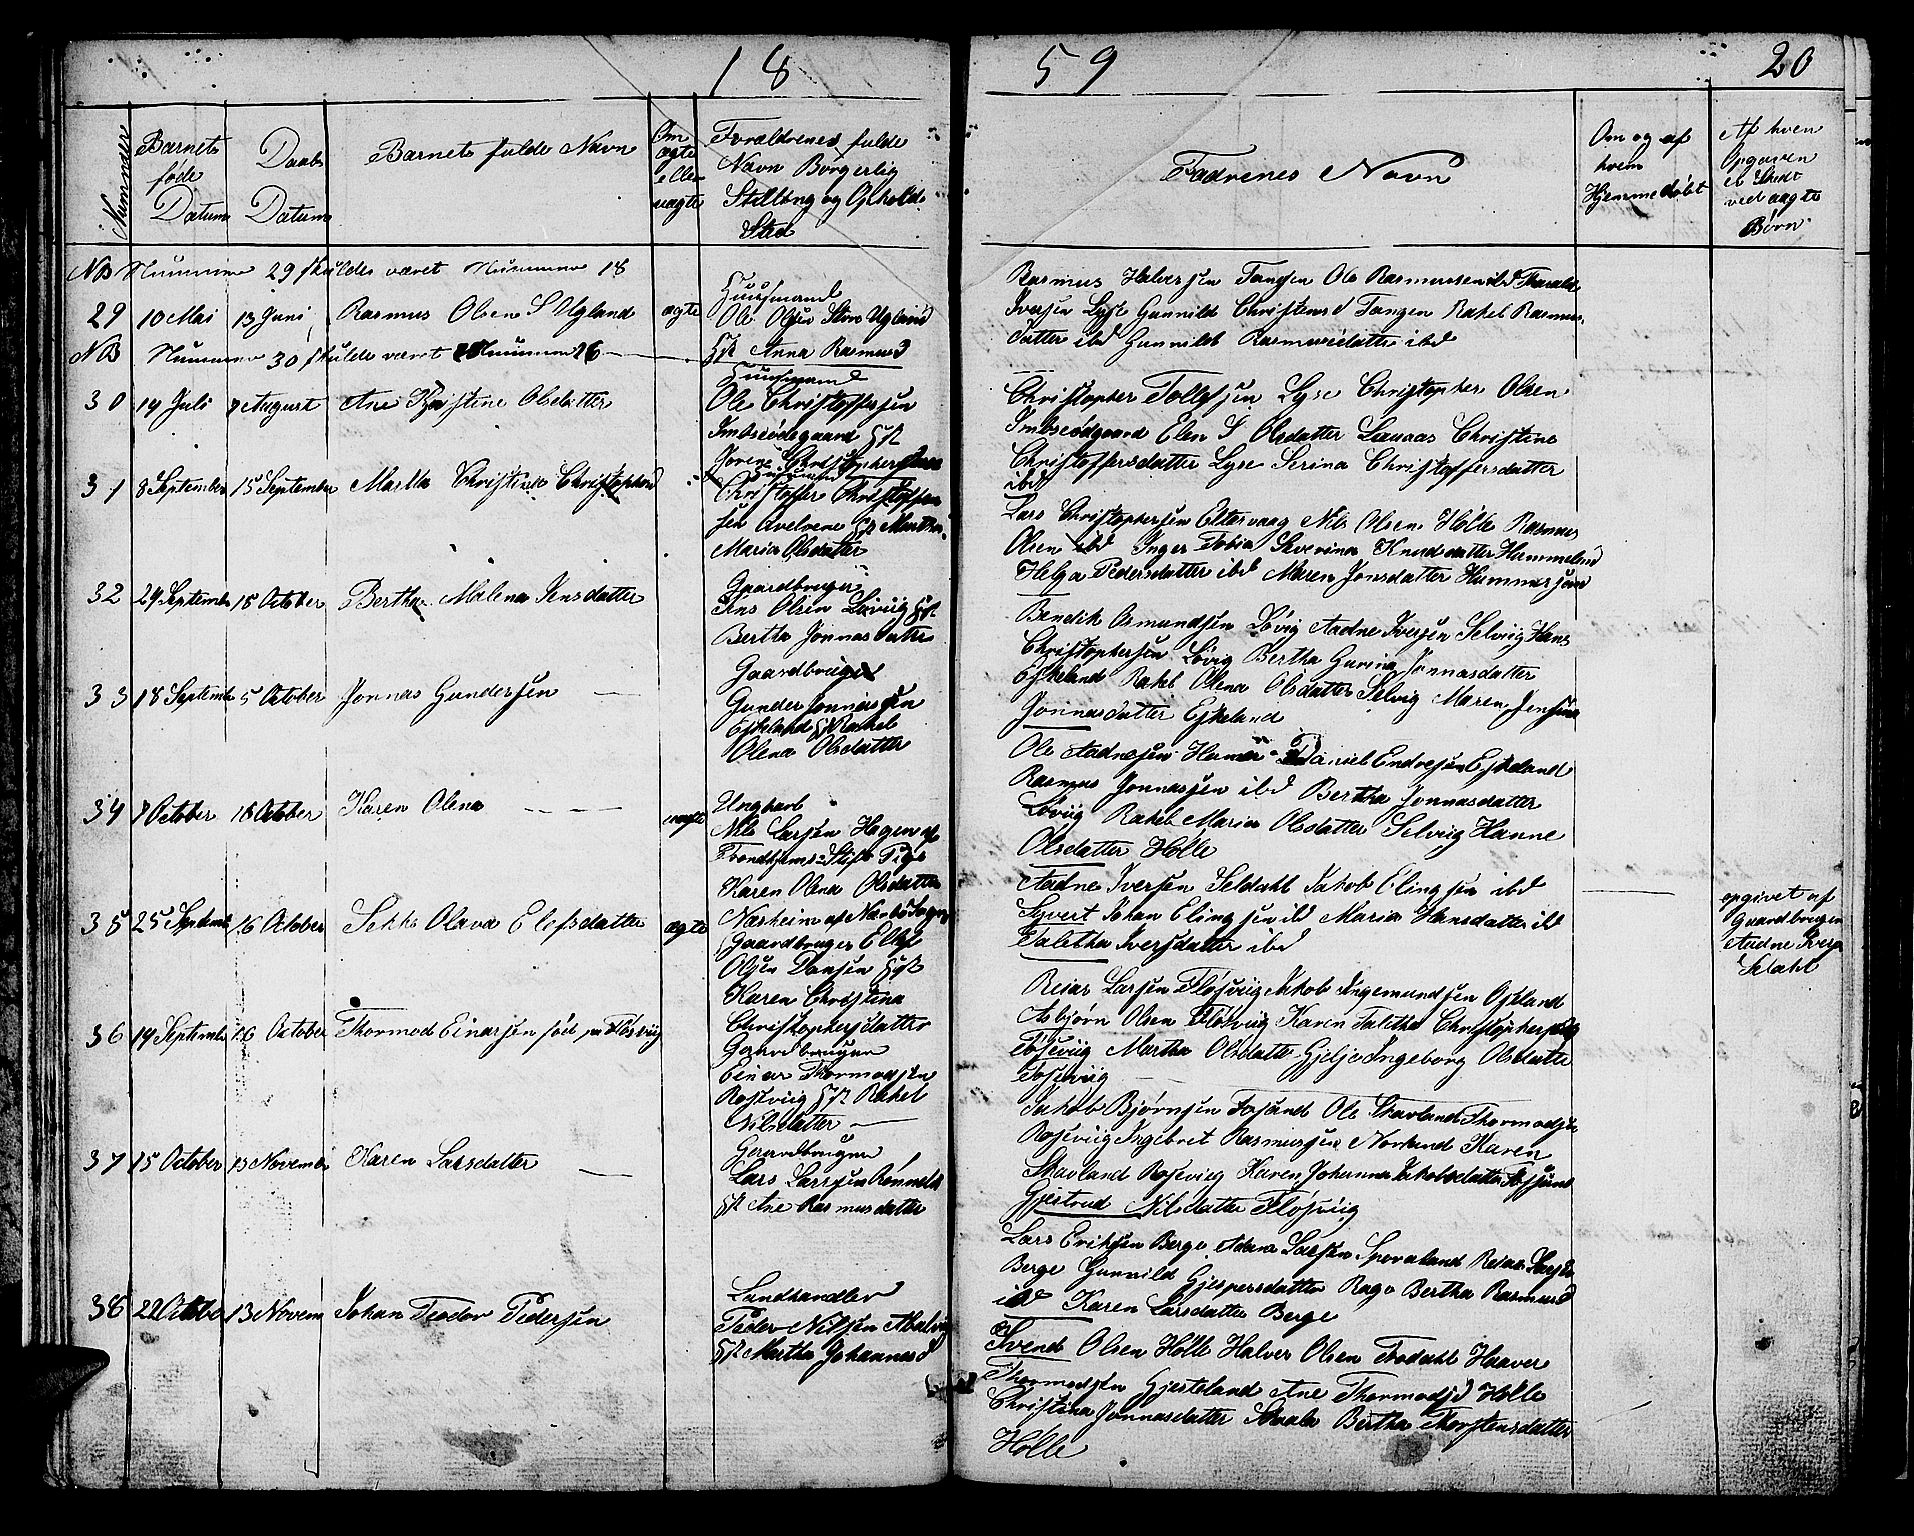 18 59 20
Nummer
Barnets føde Datum
Daabs Datum
Barnets fulde Navn
Om ægte eller uægte
Forældrenes fulde Navn Borgerlig Stilling og Opholds Sted
Fadrenes Navn
Om og af hvem Hjemmedøbt
Af hvem Opgaven er Skedt ved uægte Børn
NB Nummer 29 skulde været Nummer 18
29 10 Mai 13 Juni Rasmus Olsen S Ugland ægte
Huusmand
Ole Olsen Store Ugland
Hst Anna Rasmusd
Rasmus Halversen Tangen Ole Rasmussen ibd Tharald
Iversen Lyse Gunnild Christensd Tangen Rakel Rasmus
datter ibd Gunnild Rasmusdatter ibd
NB Nummer 30 skulde været Nummer 26
30 19 Juli 7 August Ane Kjistine Olsdatter
Huusmand
Ole Christoffersen
Imbsødegaard Hst
Christopher Tollefsen Lyse Christopher Olsen
Imbsødgaard Elen S Olsdatter Launas Christine
Christoffersdatter Lyse Serina Christoffersdatter
ibd
31 8 September 15 September Martha Christine Christophersd
Christoffer Christoffer
sen Hst Martha
Maria Olsdatter
Lars Christophersen Eltervaag Nils Olsen Hølle Rasmus
Olsen ibd Inger Tobia Severina Knudsdatter Hammeland
Helga Pedersdatter ibd Maren Jonsdatter
32 29 Septemb 18 October Bertha Malena Jensdatter
Gaardbruger
Jens Olsen Løviig Hst
Bertha Jonnasdatter
Bendik Osmundsen Løvig Aadne Iversen Selviig Hans
Christophersen Løvig Bertha Gurina Jonnasdatter
Eskeland Rakel Olena Olsdatter Selvig Maren
Jonnasdatter Eskeland
33 18 Septemb 5 October Jonnas Gundersen
Gaardbruger
Gunder Jonnassen
Eskeland Hst Rakel
Olena Olsdatter
Ole Aadnesen Daniel Endresen Eskeland
Rasmus Jonnassen ibd Bertha Jonnasdatter
Løviig Rakel Maria Olsdatter Selviig Hanne
Olsdatter Hølle
34 7 October 18 October Karen Olena uægte
Ungkarl
Nils Larsen Hagen af
Trondhjems Stift Pige
Karen Olena Olsdatter
Næsheim af
Aadne Iversen Seldahl Jakob Elingsen ibd
Syvert Johan Elingsen ibd Maria Hansdatter ibd
Talitha Iversdatter ibd
opgivet af
Gaardbrugeren
Aadne Ivers
Seldahl
35 25 Septemb 16 October Sekke Olava Elefsdatter ægte
Gaardbruger Ellef
Olsen Hst
Karen Christina
Christophersdatter
Reiar Larsen Fløsviig Jakob Ingemundsen Ostland
Asbjørn Olsen Fløsviig Karen Talitha Christophersd
Martha Olsdatter Gjelje Ingeborg Olsdatter
36 19 Septemb 16 October Thormod Einarsen fød paa Fløsviig
Gaardbruger
Einar Thormodsen
Rossviig Hst Rakel
Nilsdatter
Jakob Bjørnsen Fossand Ole Skavland Thormodsen
Rosseviig Ingebret Rasmussen Norland Karen
Skavland Rosseviig Karen Johanna Jakobsdatter Fossand
Gjertrud Nilsdatter Fløsviig
37 15 October 13 Novemb Karen Larsdatter
Gaardbruger
Lars Larsen
Hst Ane Rasmusdatter
Lars Eriksen Berge Larsen Reiar Larsen
Berge Gunnild Gjespersdatter Rage Bertha Rasmusd
ibd Karen Larsdatter Berge
38 22 October 13 Novem Johan Teodor Pedersen
Landhandler
Peder Nilsen Abelvig
Hst Martha Johannesd
Svend Olsen Hølle Halver Olsen Frodahl Haaver
Thormodsen Gjesteland Ane Thormodsd Hølle
Christina Jonnasdatter Bertha Thorstensdatter
Hølle